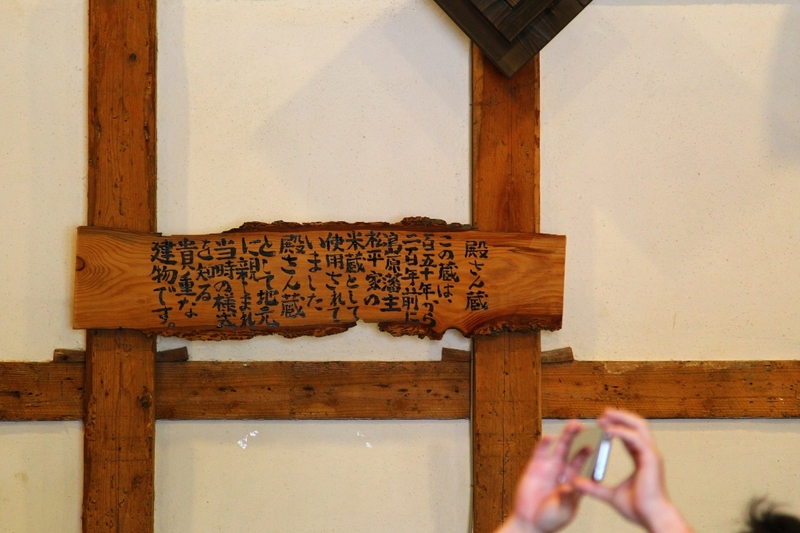 殿さん蔵
この蔵は、
二百五十年から
二百年前に
島原藩主
松平家の
米蔵として
使用されて
いました
殿さん蔵
として地元
に親しまれ
当時の様式
を知る
貴重な
建物です。